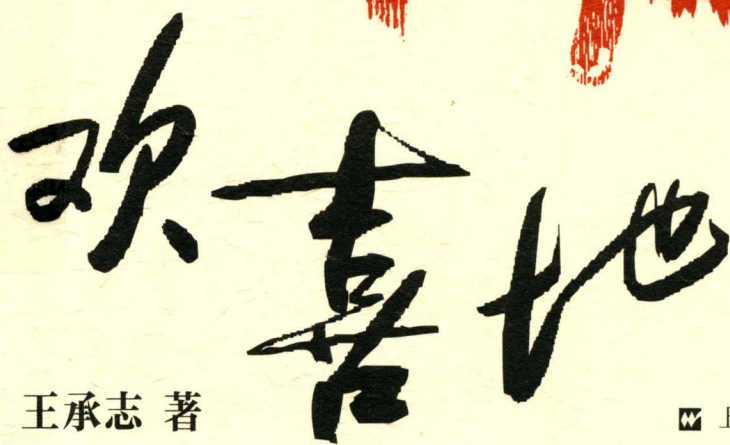 欢喜地
王承志 著
上